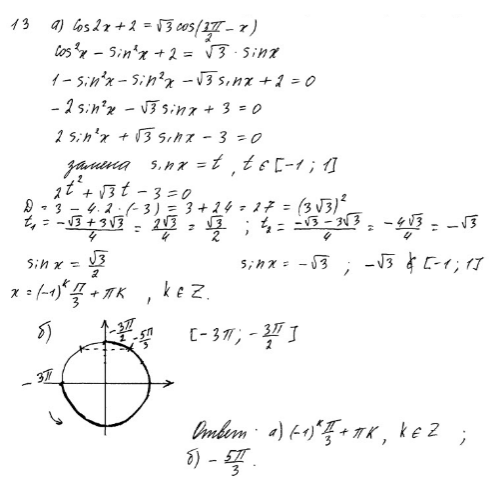 13 а) cos2x + 2 = √3 cos(3π/2 − x)
cos²x − sin²x + 2 = √3 · sinx
1 − sin²x − sin²x − √3 sinx + 2 = 0
− 2 sin²x − √3 sinx + 3 = 0
2 sin²x + √3 sinx − 3 = 0
замена sinx = t , t ∈ [−1 ; 1]
2t² + √3 t − 3 = 0
D = 3 − 4·2·(−3) = 3 + 24 = 27 = (3√3)²
t₁ = (−√3 + 3√3)/4 = 2√3/4 = √3/2 ; t₂ = (−√3 − 3√3)/4 = −4√3/4 = −√3
sinx = √3/2 sinx = −√3 ; −√3 ∉ [−1 ; 1]
x = (−1)ᵏ π/3 + πk , k ∈ Z.
б) −3π/2 [−3π ; −3π/2]
−5π/3
−3π
Ответ: а) (−1)ᵏ π/3 + πk , k ∈ Z ;
б) − 5π/3 .